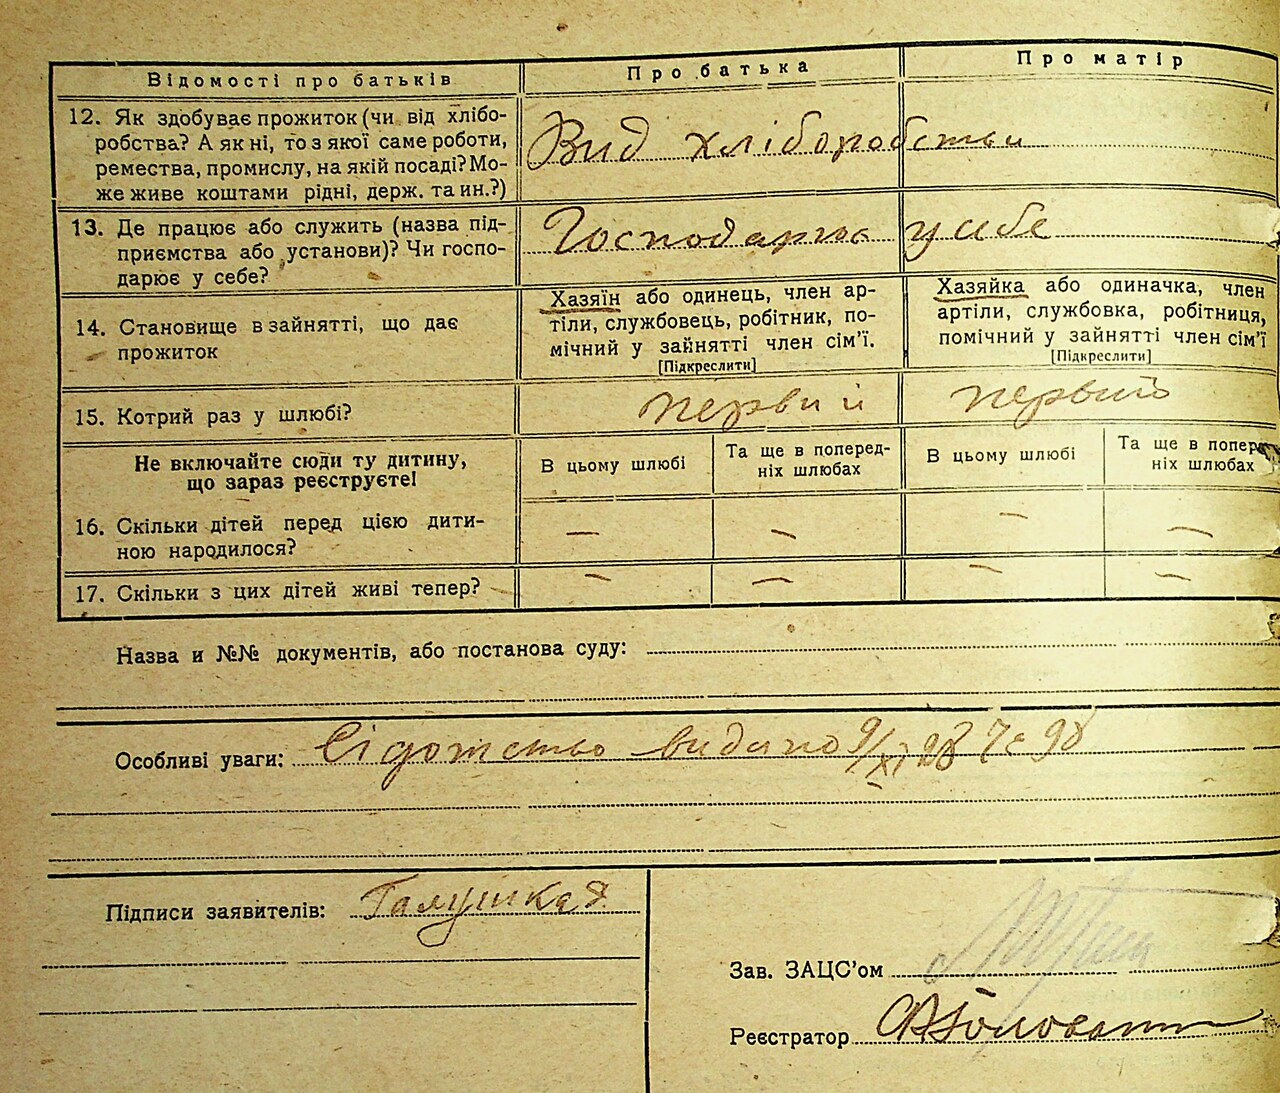 Відомості про батьків
Про батька
Про матір
12. Як здобуває прожиток (чи від хлібо-
робства? А як ні, то з якої саме роботи,
ремества, промислу, на якій посаді? Мо-
же живе коштами рідні, держ. та ин.?)
Вид хліборобства
13. Де працює або служить (назва під-
приємства або установи)? Чи госпо-
дарює у себе?
Господарює у себе
14. Становище в зайнятті, що дає
прожиток
Хазяїн або одинець, член ар-
тіли, службовець, робітник, по-
мічний у зайнятті член сім'ї.
[Підкреслити]
Хазяйка або одиначка, член
артіли, службовка, робітниця,
помічний у зайнятті член сім'ї
[Підкреслити]
15. Котрий раз у шлюбі?
первий
первий
Не включайте сюди ту дитину,
що зараз реєструєте!
В цьому шлюбі
Та ще в поперед-
ніх шлюбах
В цьому шлюбі
Та ще в поперед
ніх шлюбах
16. Скільки дітей перед цією дити-
ною народилося?
— — — —
17. Скільки з цих дітей живі тепер?
— — — —
Назва и №№ документів, або постанова суду:
Особливі уваги: видано 9/XI 28
Підписи заявителів: Галушка
Зав. ЗАЦС'ом
Реєстратор